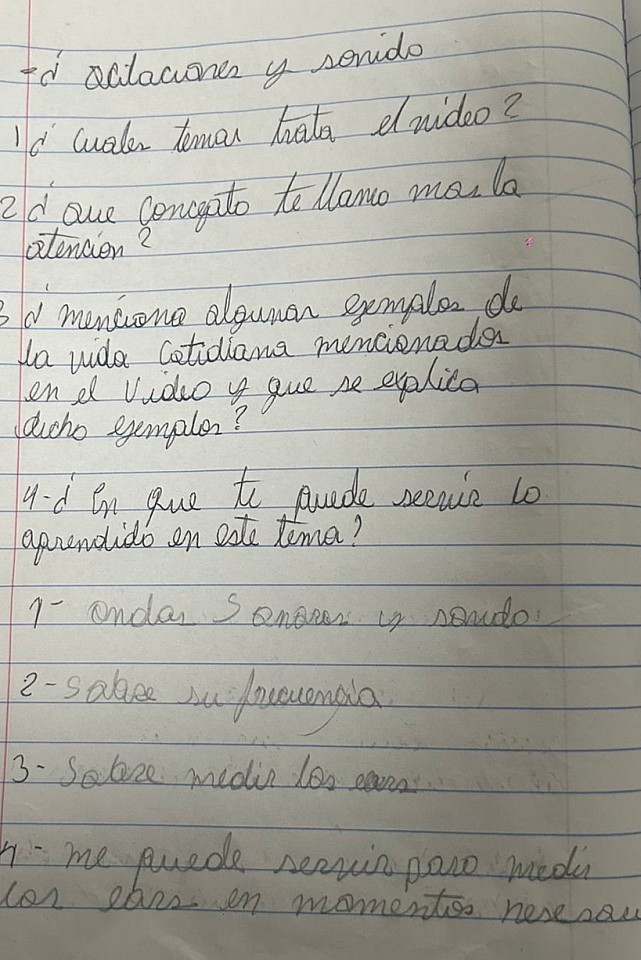 -¿ ocilaciones y sonido
1 ¿ Cuales temas trata el video?
2 ¿ que Concepto te llamo mas la
atención?
3 ¿ menciona algunas ejemplos de
la vida Cotidiana mencionados
en el Video y que se explica
dicho ejemplos?
4-¿ En que te puede servir lo
aprendido en este tema?
1- ondas Sonoras y sonido.
2- Sobre su frecuencia
3- Sobre medir los ears
4- me puede servir para medir
los ears en momentos